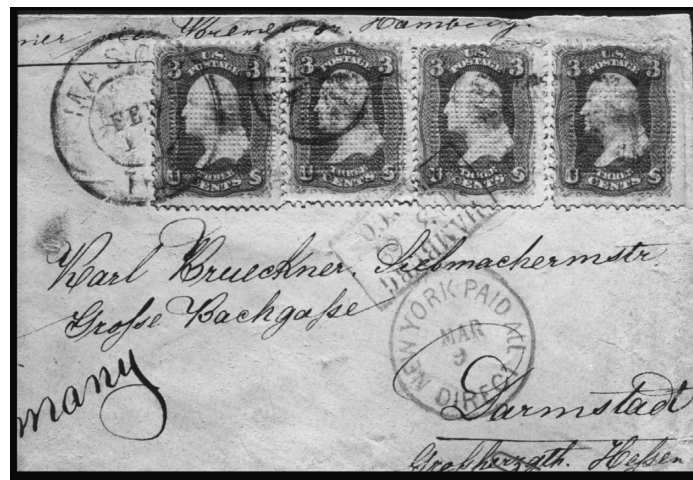 via Bremen or Hamburg.
MASON
FEB
U.S. POSTAGE 3 3 THREE CENTS U S
U.S. POSTAGE 3 3 THREE CENTS U S
U.S. POSTAGE 3 3 THREE CENTS U S
U.S. POSTAGE 3 3 THREE CENTS U S
HAMBURG
Karl Brueckner, Siebmachermstr.
Große Bachgaße
NEW YORK PAID ALL DIRECT
MAR
9
many
Darmstadt
Großherzgth. Heßen